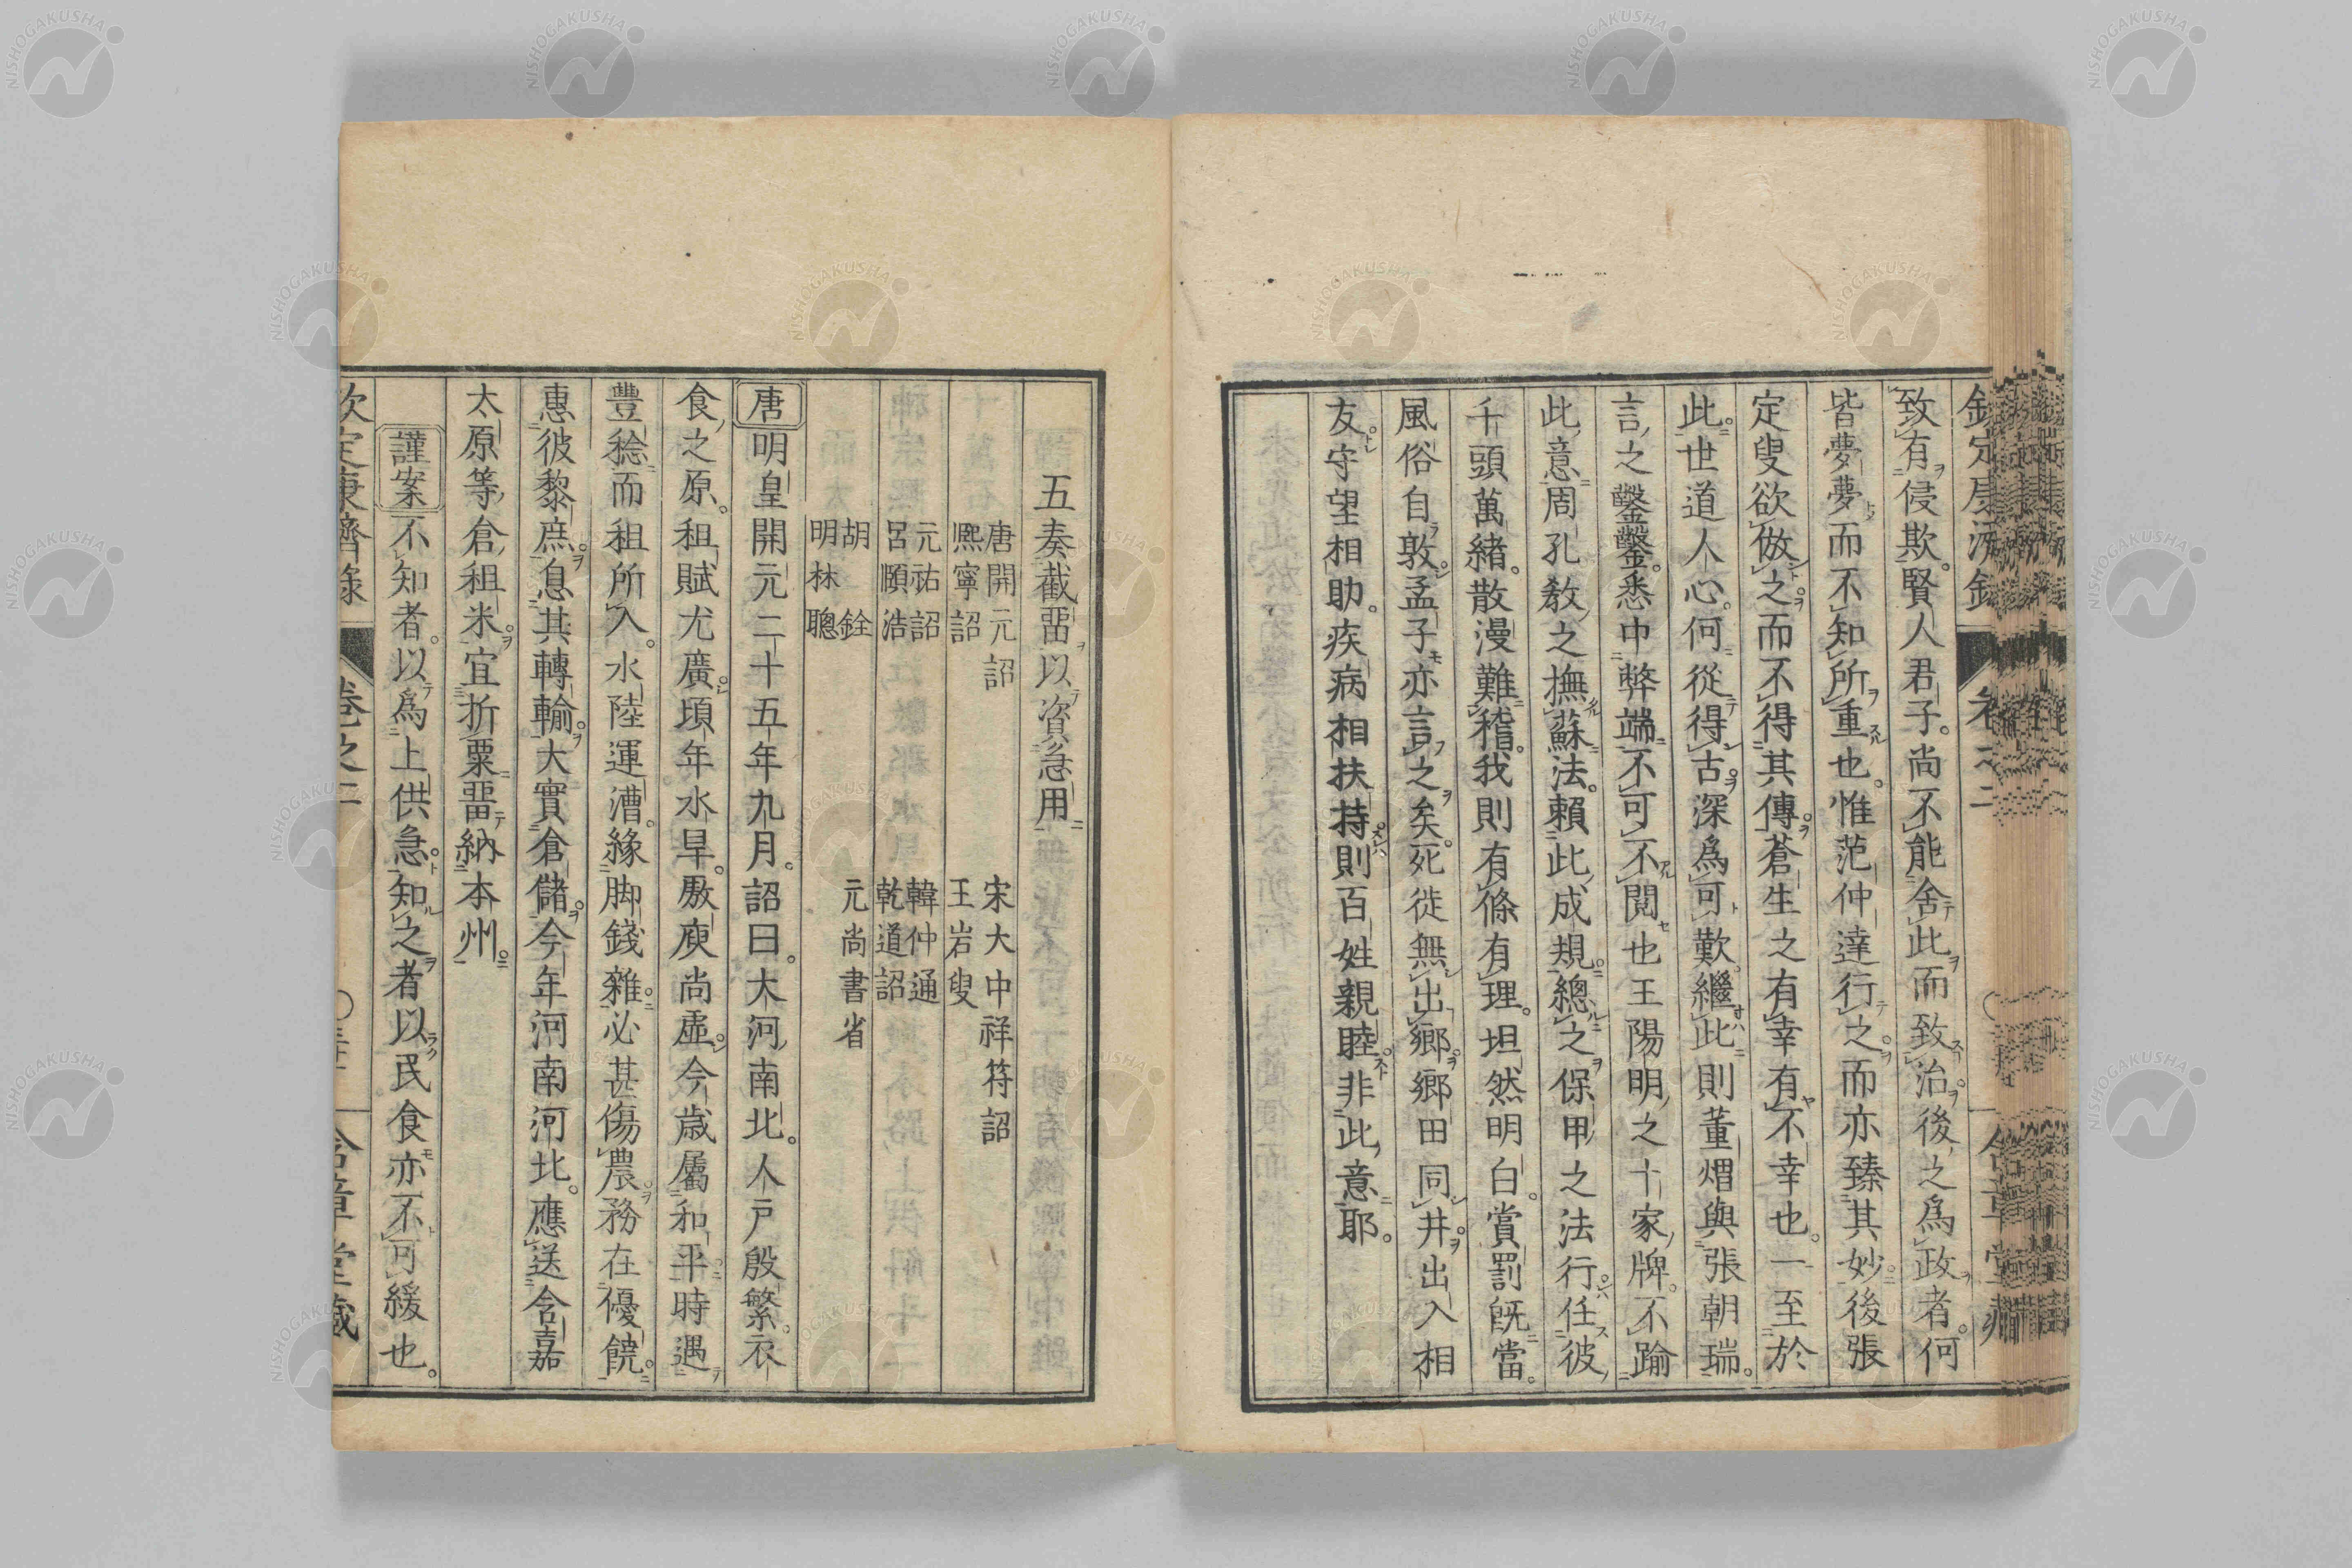 致有侵欺。賢人君子。尚不能舍此而致治。後之為政者。何
皆夢夢而不知所重也。惟范仲達行之。而亦臻其妙。後張
定叟欲倣之。而不得其傳。蒼生之有幸有不幸也。一至於
此。世道人心。何從得古。深為可歎。繼此則董煟與張朝瑞。
言之鑿鑿。悉中弊端。不可不閱也。王陽明之十家牌。不踰
此意。周孔敎之撫蘇法。賴此成規。總之保甲之法行。任彼
千頭萬緒。散漫難稽。我則有條有理。坦然明白。賞罰旣當。
風俗自敦。孟子亦言之矣。死徙無出鄉。鄉田同井。出入相
友。守望相助。疾病相扶持。則百姓親睦。非此意耶。
五奏截畱以資急用
唐開元詔　宋大中祥符詔
熙寧詔　王岩叟
元祐詔　韓仲通
呂頤浩　乾道詔
胡銓　元尚書省
明林聰
唐明皇開元二十五年九月。詔曰。大河南北。人戶殷繁。衣
食之原。租賦尤廣。頃年水旱。厫庾尚虛。今歲屬和平。時遇
豐稔。而租所入。水陸運漕。緣脚錢雜。必甚傷農。務在優饒。
惠彼黎庶。息其轉輸。大實倉儲。今年河南河北。應送含嘉
太原等倉租米。宜折粟畱納本州。
謹案不知者。以為上供急。知之者以民食亦不可緩也。
欽定康濟錄　卷之二　含章堂藏